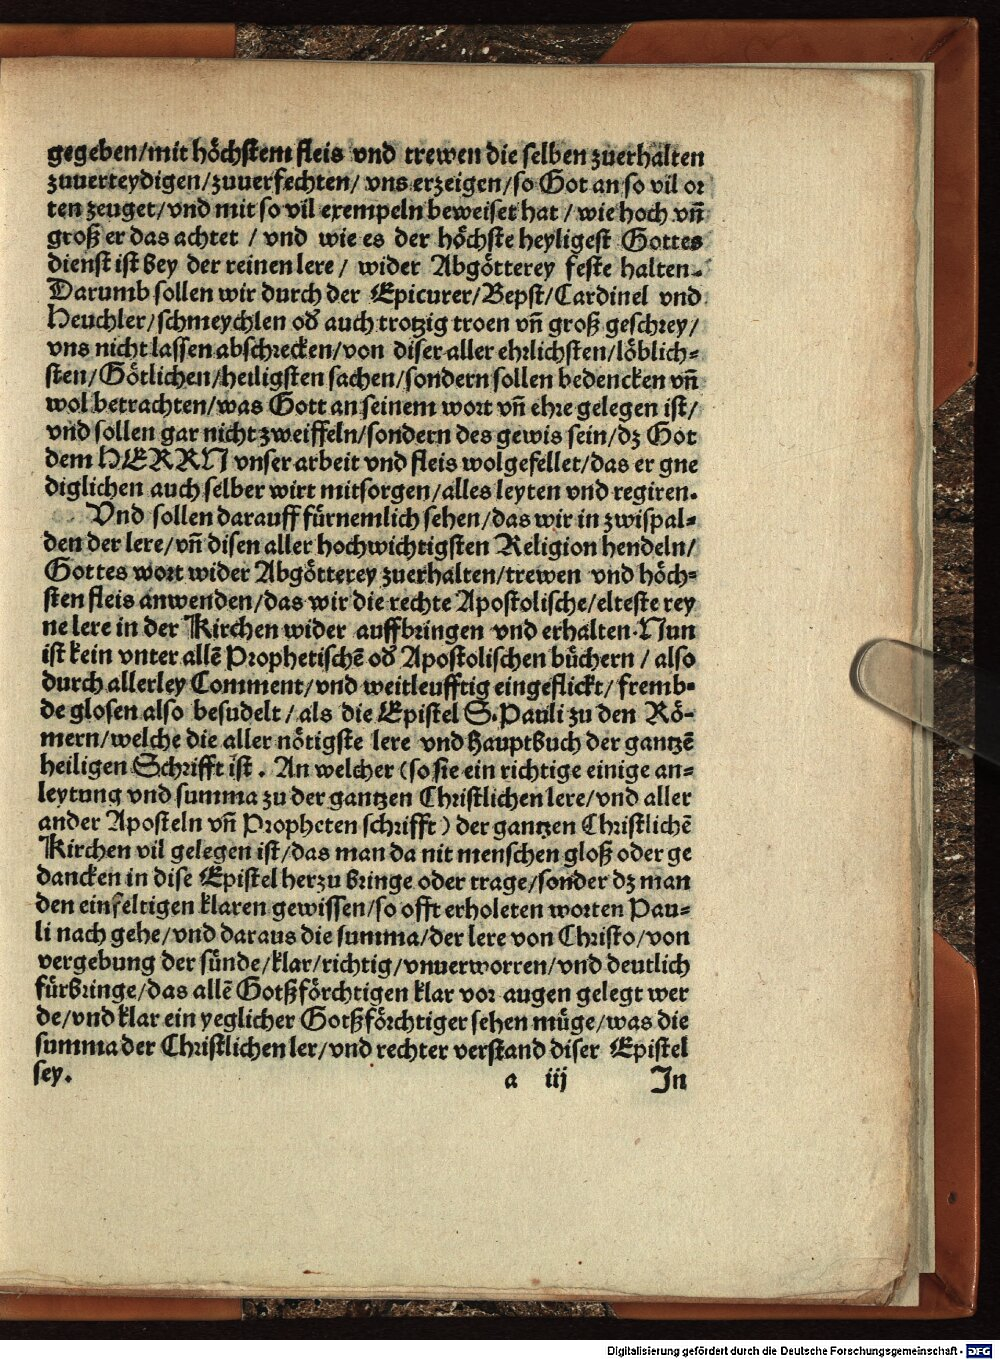 gegeben/mit höchstem fleis vnd trewen die selben zuerhalten
zuuerteydigen/zuuerfechten/ vns erzeigen/so Got an so vil or
ten zeuget/vnd mit so vil exempeln beweiset hat / wie hoch vñ
groß er das achtet / vnd wie es der höchste heyligest Gottes
dienst ist bey der reinen lere / wider Abgötterey feste halten.
Darumb sollen wir durch der Epicurer/Bepst/Cardinel vnd
Heuchler/schmeychlen od̕ auch trotzig troen vñ groß geschrey/
vns nicht lassen abschrecken/von diser aller ehrlichsten/löblich⸗
sten/Götlichen/heiligsten sachen/sondern sollen bedencken vñ
wol betrachten/was Gott an seinem wort vñ ehre gelegen ist/
vnd sollen gar nicht zweiffeln/sondern des gewis sein/dz Got
dem HERRN vnser arbeit vnd fleis wolgefellet/das er gne
diglichen auch selber wirt mitsorgen/alles leyten vnd regiren.
Vnd sollen darauff fürnemlich sehen/das wir in zwispal⸗
den der lere/vñ disen aller hochwichtigsten Religion hendeln/
Gottes wort wider Abgötterey zuerhalten/trewen vnd höch⸗
sten fleis anwenden/das wir die rechte Apostolische/elteste rey
ne lere in der Kirchen wider auffbringen vnd erhalten. Nun
ist kein vnter allē Prophetischē od̕ Apostolischen büchern / also
durch allerley Comment/vnd weitleufftig eingeflickt/ fremb⸗
de glosen also besudelt / als die Epistel S. Pauli zu den Rö⸗
mern/welche die aller nötigste lere vnd hauptbuch der gantzē
heiligen Schrifft ist. An welcher (so sie ein richtige einige an⸗
leytung vnd summa zu der gantzen Christlichen lere/vnd aller
ander Aposteln vñ Propheten schrifft) der gantzen Christlichē
Kirchen vil gelegen ist/das man da nit menschen gloß oder ge
dancken in dise Epistel herzu bringe oder trage/sonder dz man
den einfeltigen klaren gewissen/so offt erholeten worten Pau⸗
li nach gehe/vnd daraus die summa/der lere von Christo/von
vergebung der sünde/klar/richtig/vnuerworren/vnd deutlich
fürbringe/das allē Gotßförchtigen klar vor augen gelegt wer
de/vnd klar ein yeglicher Gotßförchtiger sehen müge/was die
summa der Christlichen ler/vnd rechter verstand diser Epistel
sey. a iij In
Digitalisierung gefördert durch die Deutsche Forschungsgemeinschaft - DFG